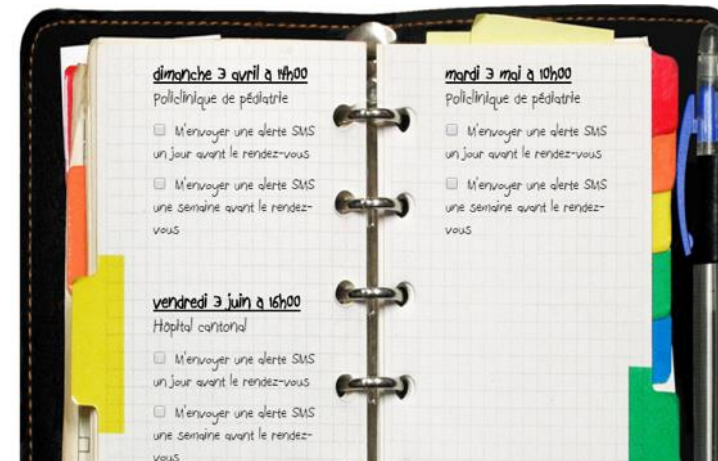 dimanche 3 avril à 14h00
Policlinique de pédiatrie
M'envoyer une alerte SMS
un jour avant le rendez-vous
M'envoyer une alerte SMS
une semaine avant le rendez-
vous
vendredi 3 juin à 16h00
Hopital cantonal
M'envoyer une alerte SMS
un jour avant le rendez-vous
M'envoyer une alerte SMS
une semaine avant le rendez-
vous
mardi 3 mai à 10h00
Policlinique de pédiatrie
M'envoyer une alerte SMS
un jour avant le rendez-vous
M'envoyer une alerte SMS
une semaine avant le rendez-
vous